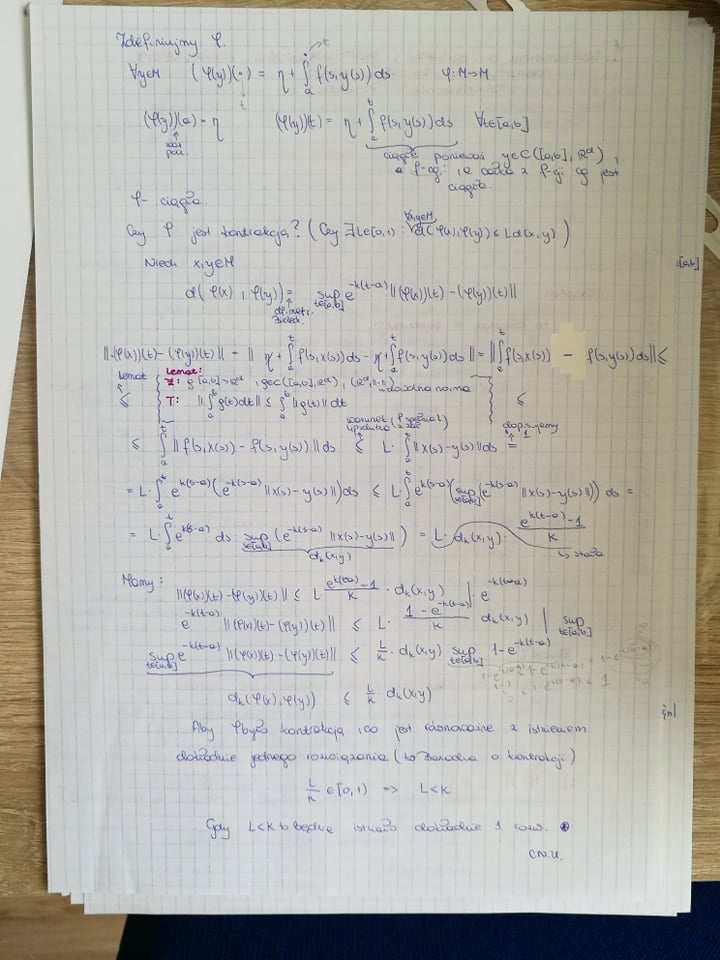 Zdefiniujmy φ.
∀y∈M (φ(y))(·) = η + ∫ₐ˙ f(s,y(s)) ds φ: M→M
t
t
(φ(y))(a) = η (φ(y))(t) = η + ∫ₐᵗ f(s,y(s)) ds ∀t∈[a,b]
war. pocz.
ciągłe ponieważ y∈C([a,b], ℝᵈ),
a f-cg. ; a całka z f-cji cg jest
ciągła.
φ - ciągła.
Czy φ jest kontrakcją? (Czy ∃L∈[0,1) : ∀x,y∈M d(φ(x),φ(y)) ≤ Ld(x,y))
Niech x,y∈M
[a,b]
d(φ(x), φ(y)) = sup t∈[a,b] e^(-k(t-a)) ||(φ(x))(t) - (φ(y))(t)||
df. metr.
||(φ(x))(t) - (φ(y))(t)|| = ||η + ∫ₐᵗ f(s,x(s)) ds - η - ∫ₐᵗ f(s,y(s)) ds|| = ||∫ₐᵗ f(s,x(s)) - f(s,y(s)) ds|| ≤
lemat ≤
Lemat:
Z: g:[a,b]→ℝᵈ, g∈C([a,b],ℝᵈ), (ℝᵈ, ||·||) dowolna norma
T: ||∫ₐᵇ g(t)dt|| ≤ ∫ₐᵇ ||g(t)|| dt
≤
warunek Lipschitza (f spełnia z zał.)
dopisujemy 1
≤ ∫ₐᵗ ||f(s,x(s)) - f(s,y(s))|| ds ≤ L·∫ₐᵗ ||x(s)-y(s)|| ds =
= L·∫ₐᵗ e^(k(s-a)) (e^(-k(s-a)) ||x(s)-y(s)||) ds ≤ L·∫ₐᵗ e^(k(s-a)) (sup s∈[a,b] (e^(-k(s-a)) ||x(s)-y(s)||)) ds =
= L·∫ₐᵗ e^(k(s-a)) ds · sup s∈[a,b] (e^(-k(s-a)) ||x(s)-y(s)||) = L· dₖ(x,y) · (e^(k(t-a)) - 1)/k
dₖ(x,y)
↳ stała
Mamy:
||(φ(x))(t) - (φ(y))(t)|| ≤ L· (e^(k(t-a)) - 1)/k · dₖ(x,y) | · e^(-k(t-a))
e^(-k(t-a)) ||(φ(x))(t) - (φ(y))(t)|| ≤ L· (1 - e^(-k(t-a)))/k dₖ(x,y) | sup t∈[a,b]
sup t∈[a,b] e^(-k(t-a)) ||(φ(x))(t) - (φ(y))(t)|| ≤ L/k · dₖ(x,y) sup t∈[a,b] 1 - e^(-k(t-a))
dₖ(φ(x),φ(y)) ≤ L/k · dₖ(x,y)
Aby φ było kontrakcją, co jest równoważne z istnieniem
dokładnie jednego rozwiązania (tw Banacha o kontrakcji)
L/k ∈ [0,1) => L<k
Gdy L<k to będzie istniało dokładnie 1 rozw.
c.n.u.